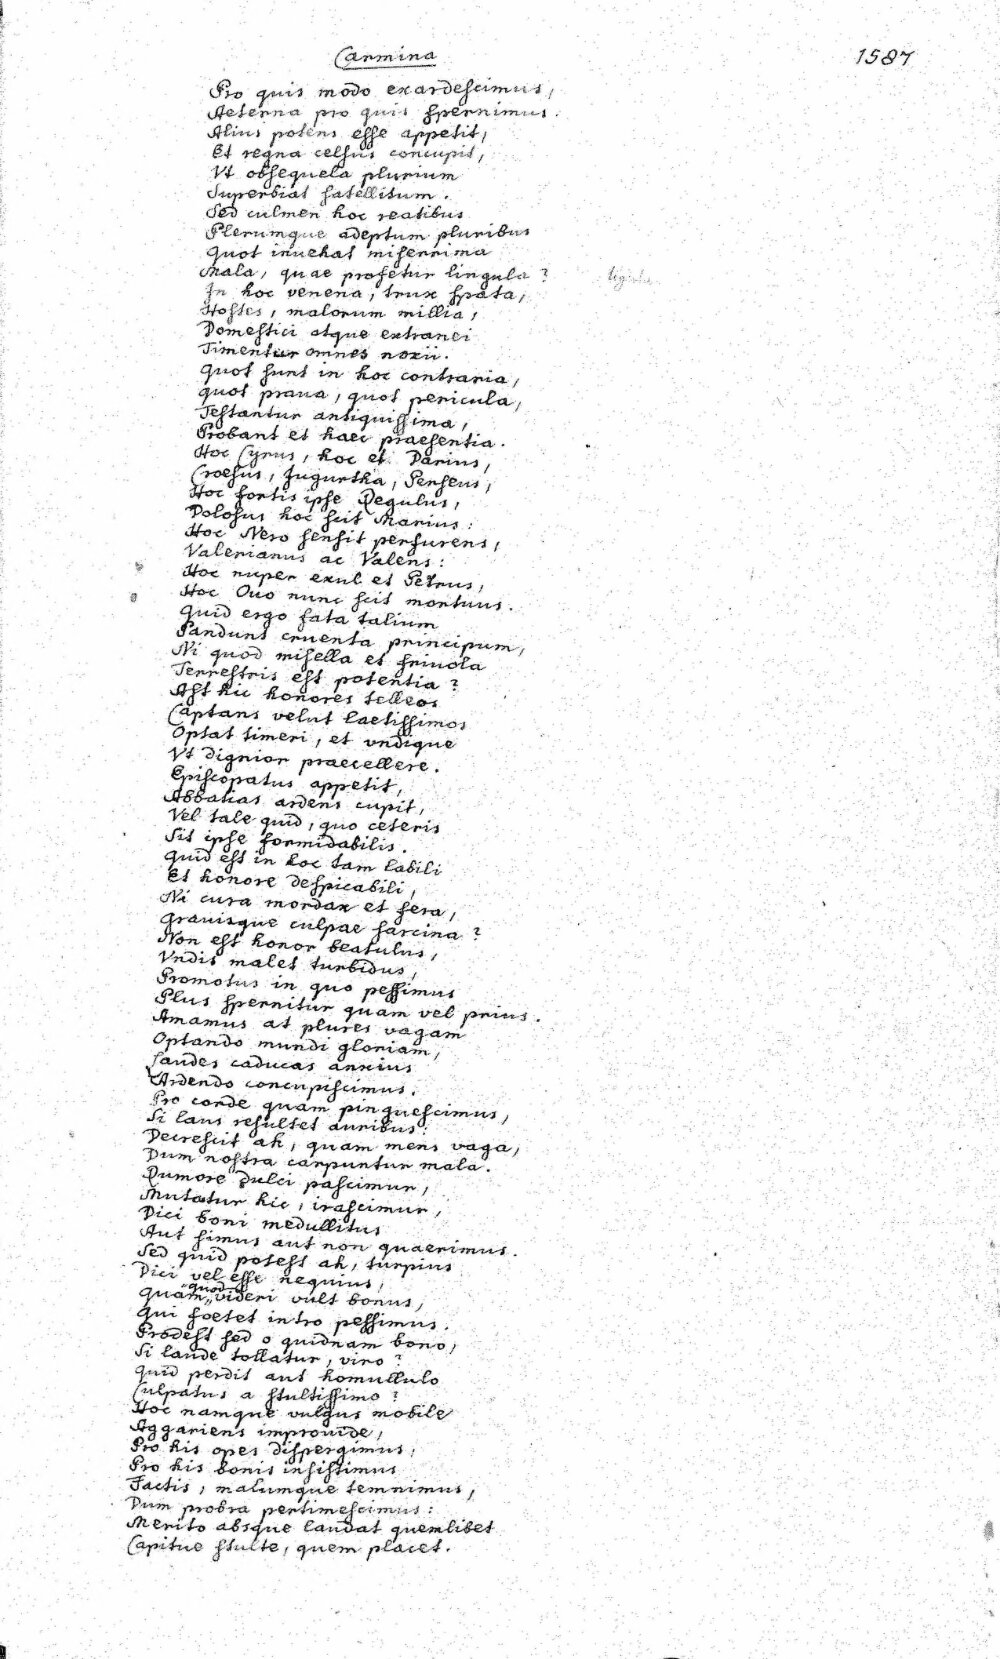 Carmina 1587
Pro quis modo exardescimus,
Aeterna pro quis spernimus.
Alius potens esse appetit,
Et regna celsus concupit,
Vt obsequela plurium
Superbiat satellitum.
Sed culmen hoc reatibus
Plerumque adeptum pluribus
Quot inuehat miserrima
Mala, quae profetur lingula?
In hoc venena, trux spata,
Hostes, malorum millia,
Domestici atque extranei
Timentur omnes noxii.
Quot sunt in hoc contraria,
Quot praua, quot pericula,
Testantur antiquissima,
Probant et haec praesentia.
Hoc Cyrus, hoc et Darius,
Croesus, Jugurtha, Perseus,
Hoc fortis ipse Regulus,
Dolosus hoc scit Marius:
Hoc Nero sensit perfurens,
Valerianus ac Valens:
Hoc nuper exul et Petrus,
Hoc Ouo nunc scit mortuus.
Quid ergo fata talium
Pandunt cruenta principum,
Ni quod misella et friuola
Terrestris est potentia?
Ast hic honores telleos
Captans velut laetissimos
Optat timeri, et vndique
Vt dignior praecellere.
Episcopatus appetit,
Abbatias ardens cupit,
Vel tale quid, quo ceteris
Sit ipse formidabilis.
Quid est in hoc tam labili
Et honore despicabili,
Ni cura mordax et fera,
Grauisque culpae sarcina?
Non est honor beatulus,
Vndis malet turbidus,
Promotus in quo pessimus
Plus spernitur quam vel prius.
Amamus at plures vagam
Optando mundi gloriam,
Laudes caducas anxius
Ardendo concupiscimus.
Pro corde quam pinguescimus,
Si laus resultet auribus:
Decrescit ah, quam mens vaga,
Dum nostra carpuntur mala.
Rumore dulci pascimur,
Mutatur hic, irascimur,
Dici boni medullitus
Aut simus aut non quaerimus.
Sed quid potest ah, turpius
Dici vel esse nequius,
Quam quod videri vult bonus,
Qui foetet intro pessimus.
Prodest sed o quidnam bono,
Si laude tollatur, viro?
Quid perdit aut homullulo
Culpatus a stultissimo?
Hoc namque vulgus mobile
Aggariens improuide,
Pro his opes dispergimus,
Pro his bonis insistimus
Factis, malumque temnimus,
Dum probra pertimescimus:
Merito absque laudat quemlibet
Capitue stulte, quem placet.